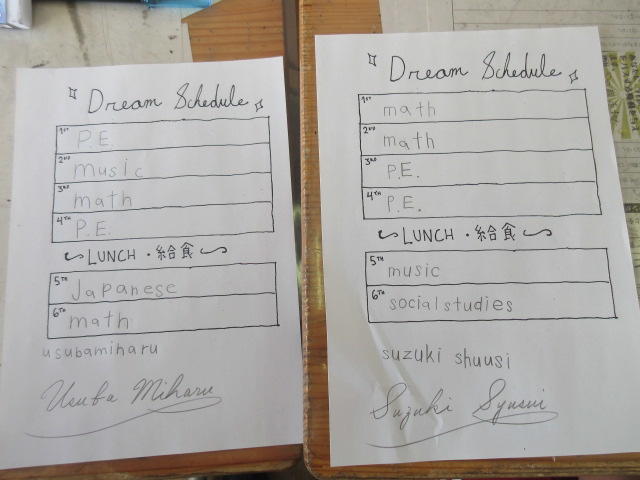 Dream Schedule
1ST P.E.
2ND music
3RD math
4TH P.E.
LUNCH・給食
5TH Japanese
6TH math
usubamiharu
Usuba Miharu
Dream Schedule
1ST math
2ND math
3RD P.E.
4TH P.E.
LUNCH・給食
5TH music
6TH social studies
suzuki shuusi
Suzuki